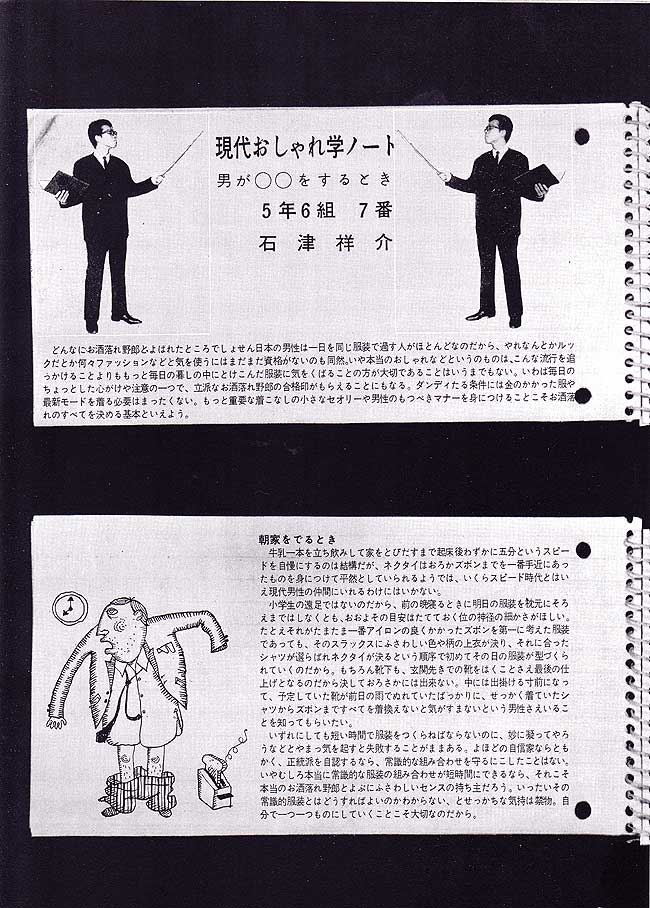 現代おしゃれ学ノート
男が○○をするとき
5年6組 7番
石津祥介
どんなにお洒落れ野郎とよばれたところでしょせん日本の男性は一日を同じ服装で過す人がほとんどなのだから、やれなんとかルッ
クだとか何々ファッションなどと気を使うにはまだまだ資格がないのも同然。いや本当のおしゃれなどというのものは、こんな流行を追
っかけることよりももっと毎日の暮しの中にとけこんだ服装に気をくばることの方が大切であることはいうまでもない。いわば毎日の
ちょっとした心がけや注意の一つで、立派なお洒落れ野郎の合格印がもらえることにもなる。ダンディたる条件には金のかかった服や
最新モードを着る必要はまったくない。もっと重要な着こなしの小さなセオリーや男性のもつべきマナーを身につけることこそお洒落
れのすべてを決める基本といえよう。
朝家をでるとき
牛乳一本を立ち飲みして家をとびだすまで起床後わずかに五分というスピー
ドを自慢にするのは結構だが、ネクタイはおろかズボンまでを一番手近にあっ
たものを身につけて平然としていられるようでは、いくらスピード時代とはい
え現代男性の仲間にいれるわけにはいかない。
小学生の遠足ではないのだから、前の晩寝るときに明日の服装を枕元にそろ
えまではしなくとも、おおよその目安はたてておく位の神経の細かさがほしい。
たとえそれがたまたま一番アイロンの良くかかったズボンを第一に考えた服装
であっても、そのスラックスにふさわしい色や柄の上衣が決り、それに合った
シャツが選らばれネクタイが決るという順序で初めてその日の服装が型づくら
れていくのだから。もちろん靴下も、玄関先きでの靴をはくことさえ最後の仕
上げとなるのだから決しておろさかには出来ない。中には出掛ける寸前になっ
て、予定していた靴が前日の雨でぬれていたばっかりに、せっかく着ていたシ
ャツからズボンまですべてを着換えないと気がすまないという男性さえいるこ
とを知ってもらいたい。
いずれにしても短い時間で服装をつくらねばならないのに、妙に凝ってやろ
うなどとやまっ気を起すと失敗することがままある。よほどの自信家ならとも
かく、正統派を自認するなら、常識的な組み合わせを守るにこしたことはない。
いやむしろ本当に常識的な服装の組み合わせが短時間にできるなら、それこそ
本当のお洒落れ野郎とよぶにふさわしいセンスの持ち主だろう。いったいその
常識的服装とはどうすればよいのかわからない、とせっかちな気持は禁物。自
分で一つ一つものにしていくことこそ大切なのだから。